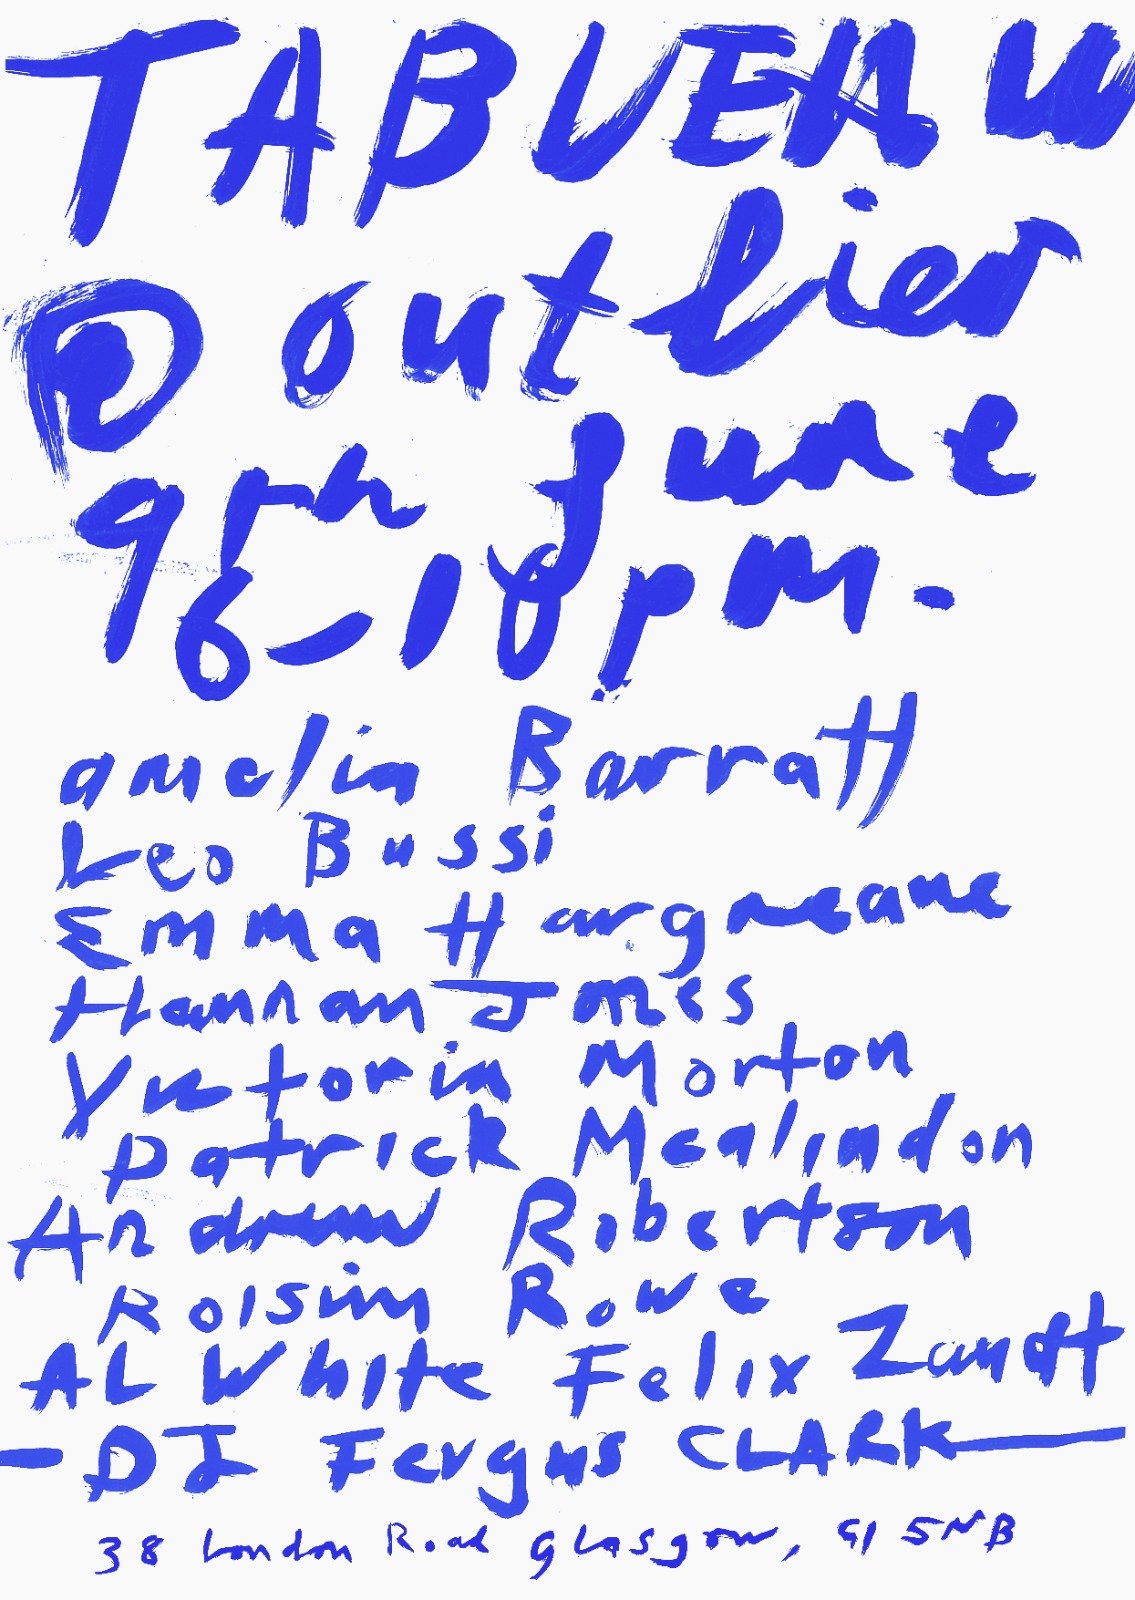 TABLEAU
@ outlier
9th June
6-10pm.
amelia Barratt
Leo Bussi
Emma Hargreave
Hannan Jones
Victoria Morton
Patrick Mcalindon
Andrew Robertson
Roisin Rowe
AL White Felix Zandt
- DJ Fergus CLARK -
38 London Road Glasgow, G1 5NB